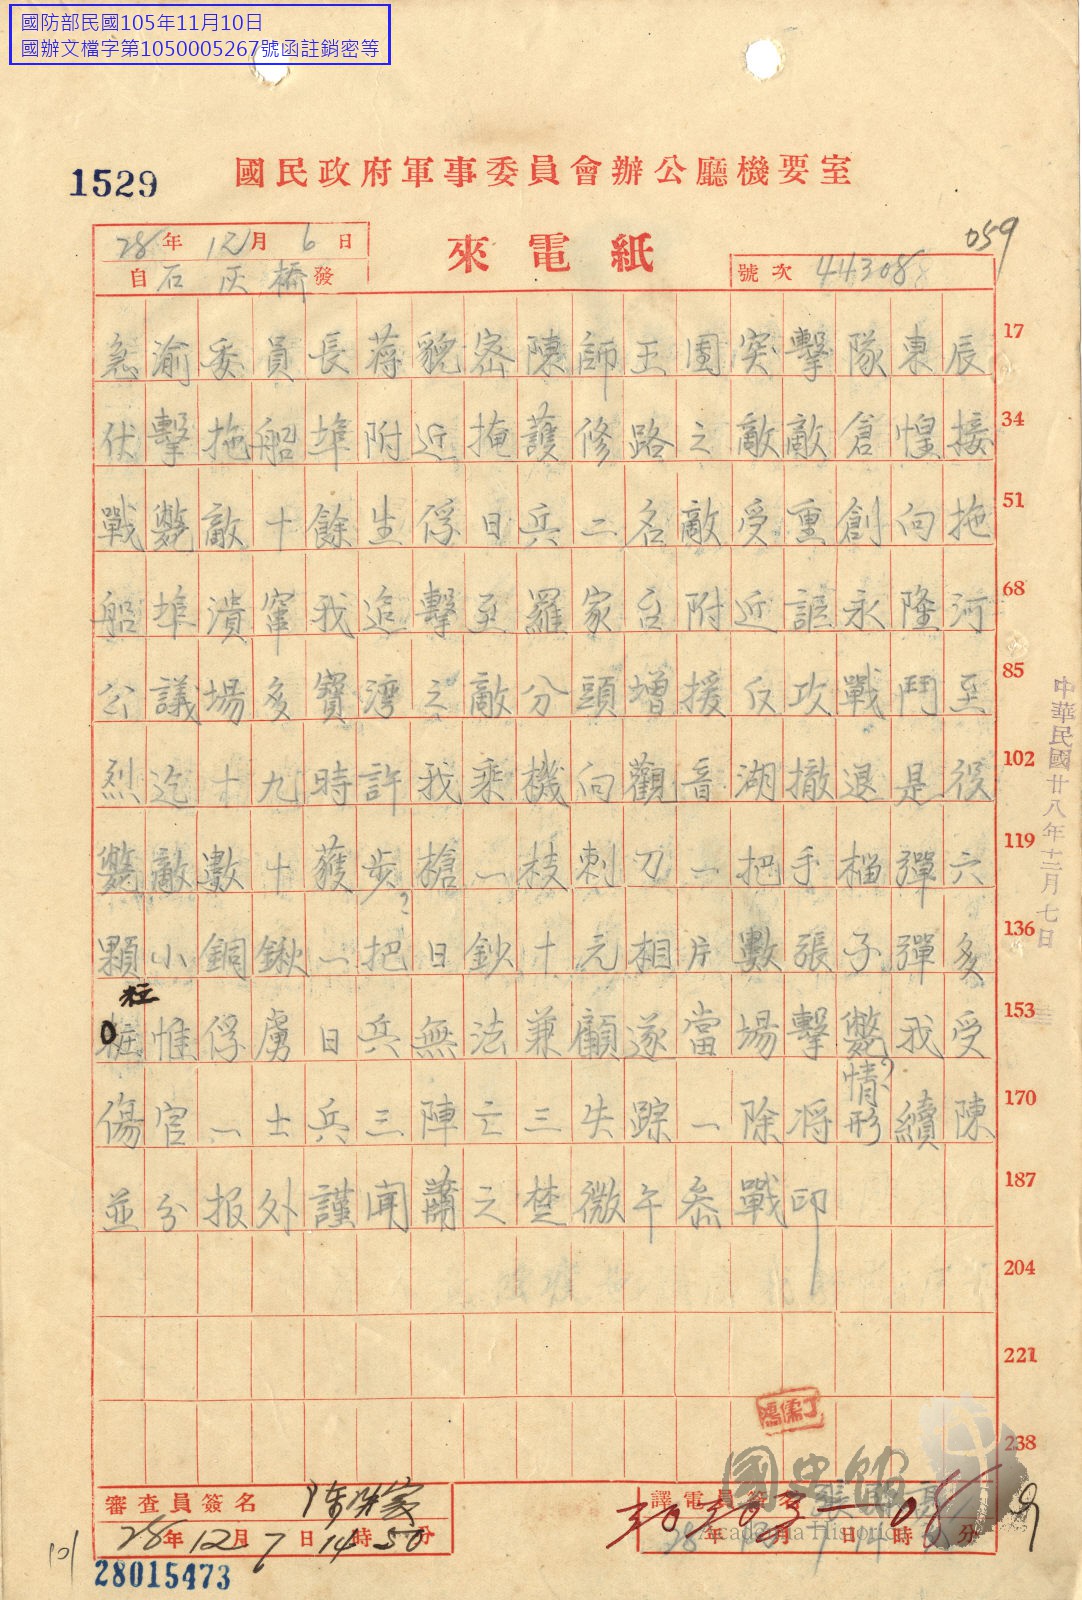 國防部民國105年11月10日
國辦文檔字第1050005267號函註銷密等
1529
國民政府軍事委員會辦公廳機要室
28年12月6日
來電紙
059
自石灰橋發
號次 443088
急渝委員長蔣貌密陳師王團突擊隊東辰 17
伏擊拖船埠附近掩護修路之敵敵倉惶接 34
戰斃敵十餘生俘日兵二名敵受重創向拖 51
船埠潰竄我追擊至羅家台附近諒永隆河 68
公議場多寶湾之敵分頭增援反攻戰鬥至 85
烈迄十九時許我乘機向觀音湖撤退是役 102
斃敵數十獲步槍一枝刺刀一把手榴彈六 119
顆小銅鍬一把日鈔十元相片數張子彈多 136
粒
惟俘虜日兵無法兼顧遂當場擊斃我受 153
傷官一士兵三陣亡三失踪一除将情形續陳 170
並分报外謹聞蕭之楚微午叅戰印 187
204
221
238
中華民國廿八年十二月七日
丁儒鴻
國史館
Academia Historica
審查員簽名
28年12月7日14時50分
譯電員簽名
28年12月7日14時 分
101
28015473